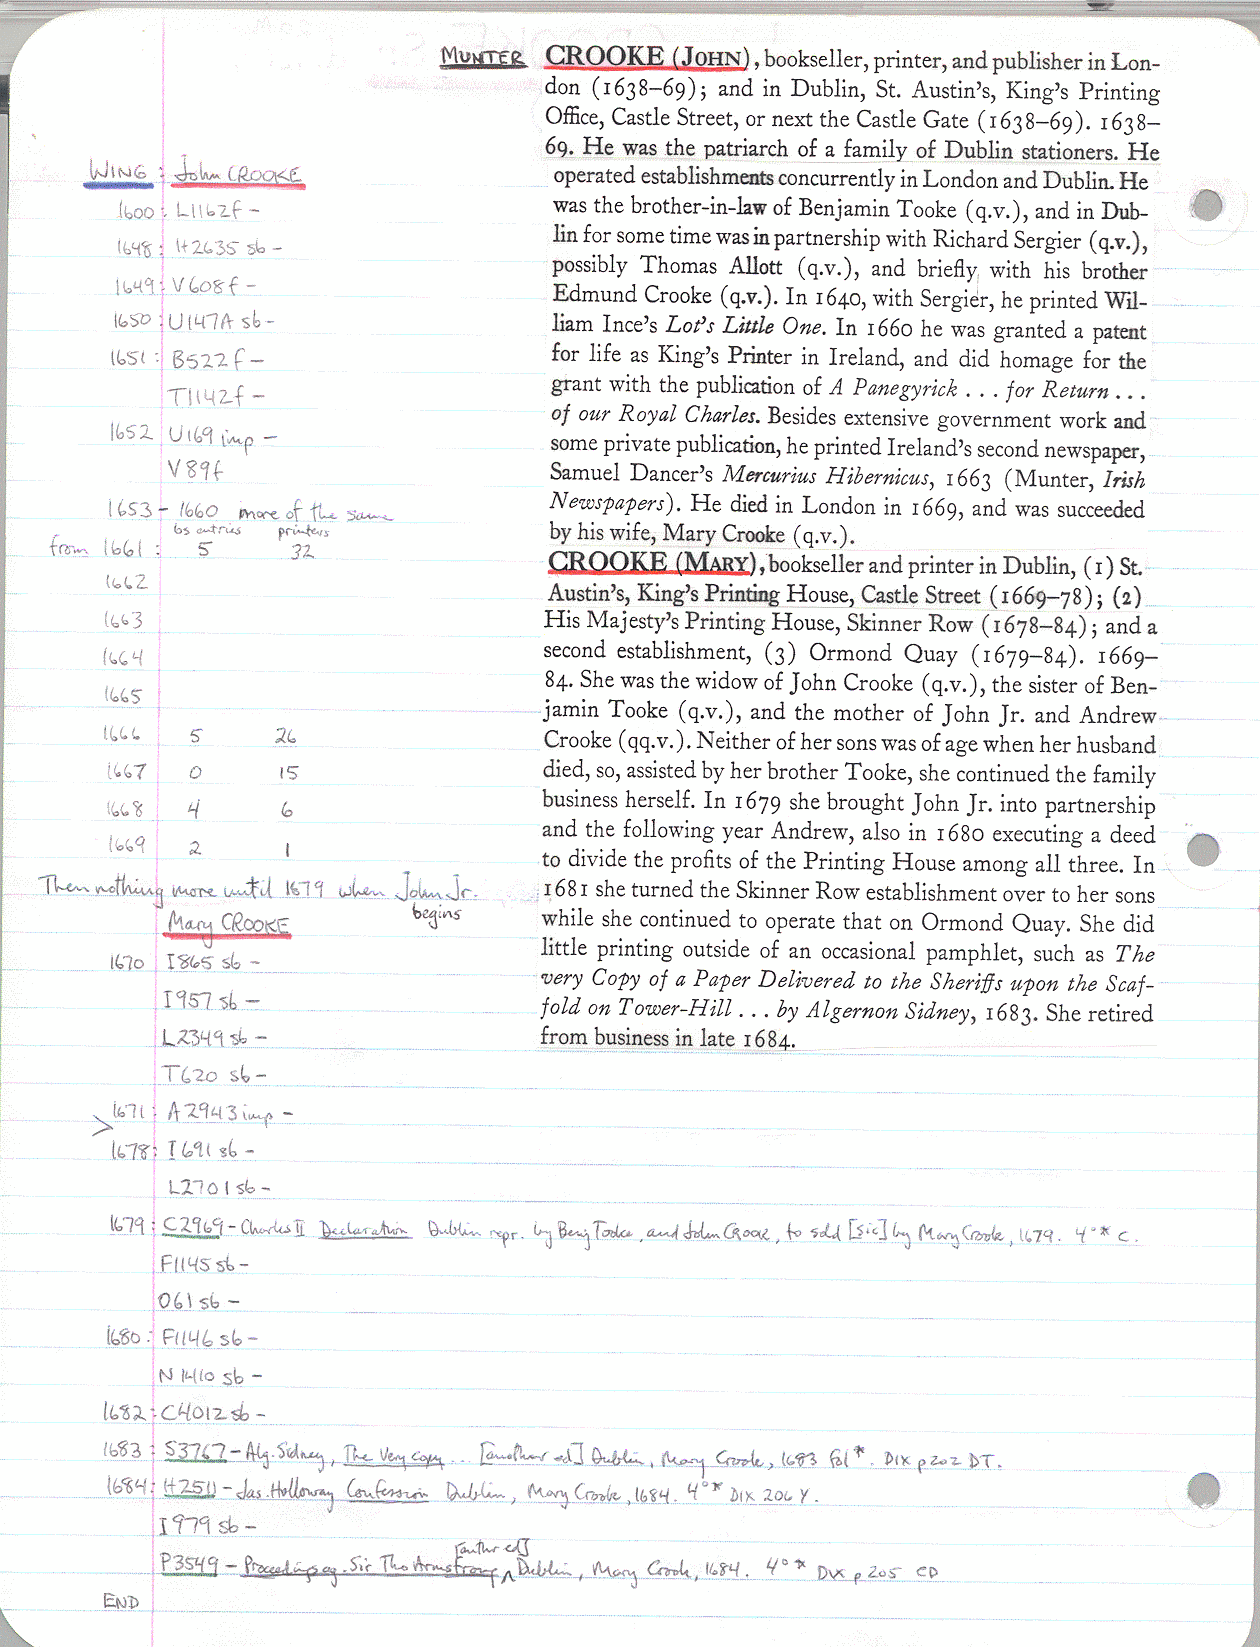 MUNTER
CROOKE (JOHN), bookseller, printer, and publisher in Lon-
don (1638–69); and in Dublin, St. Austin's, King's Printing
Office, Castle Street, or next the Castle Gate (1638–69). 1638–
69. He was the patriarch of a family of Dublin stationers. He
operated establishments concurrently in London and Dublin. He
was the brother-in-law of Benjamin Tooke (q.v.), and in Dub-
lin for some time was in partnership with Richard Sergier (q.v.),
possibly Thomas Allott (q.v.), and briefly with his brother
Edmund Crooke (q.v.). In 1640, with Sergier, he printed Wil-
liam Ince's Lot's Little One. In 1660 he was granted a patent
for life as King's Printer in Ireland, and did homage for the
grant with the publication of A Panegyrick . . . for Return . . .
of our Royal Charles. Besides extensive government work and
some private publication, he printed Ireland's second newspaper,
Samuel Dancer's Mercurius Hibernicus, 1663 (Munter, Irish
Newspapers). He died in London in 1669, and was succeeded
by his wife, Mary Crooke (q.v.).
CROOKE (MARY), bookseller and printer in Dublin, (1) St.
Austin's, King's Printing House, Castle Street (1669–78); (2)
His Majesty's Printing House, Skinner Row (1678–84); and a
second establishment, (3) Ormond Quay (1679–84). 1669–
84. She was the widow of John Crooke (q.v.), the sister of Ben-
jamin Tooke (q.v.), and the mother of John Jr. and Andrew
Crooke (qq.v.). Neither of her sons was of age when her husband
died, so, assisted by her brother Tooke, she continued the family
business herself. In 1679 she brought John Jr. into partnership
and the following year Andrew, also in 1680 executing a deed
to divide the profits of the Printing House among all three. In
1681 she turned the Skinner Row establishment over to her sons
while she continued to operate that on Ormond Quay. She did
little printing outside of an occasional pamphlet, such as The
very Copy of a Paper Delivered to the Sheriffs upon the Scaf-
fold on Tower-Hill . . . by Algernon Sidney, 1683. She retired
from business in late 1684.
WING : John CROOKE
1600 : L1162f –
1648 : H2635 sb –
1649 : V608f –
1650 : U147A sb –
1651 : B522f –
T1142f –
1652 U169 imp –
V89f
1653 – 1660 more of the same
bs entries printers
from 1661 : 5 32
1662
1663
1664
1665
1666 5 26
1667 0 15
1668 4 6
1669 2 1
Then nothing more until 1679 when John Jr.
begins
Mary CROOKE
1670 I865 sb –
I957 sb –
L2349 sb –
T620 sb –
1671 : A2943 imp –
>
1678 : I691 sb –
L2701 sb –
1679 : C2969 – Charles II Declaration Dublin repr. by Benj Tooke, and John Crook, to sold [sic] by Mary Crooke, 1679. 4°* C.
F1145 sb –
O61 sb –
1680 : F1146 sb –
N1410 sb –
1682 : C4012 sb –
1683 : S3767 – Alg. Sidney, The Very copy ... [another ed] Dublin, Mary Crooke, 1683 fol*. DIX p202 DT.
1684 : H2511 – Jas. Holloway Confession Dublin, Mary Crooke, 1684. 4°* DIX 206 Y.
I979 sb –
[anthr ed]
P3549 – Proceedings ag. Sir Tho Armstrong ^ Dublin, Mary Crook, 1684. 4°* DIX p205 CD
END